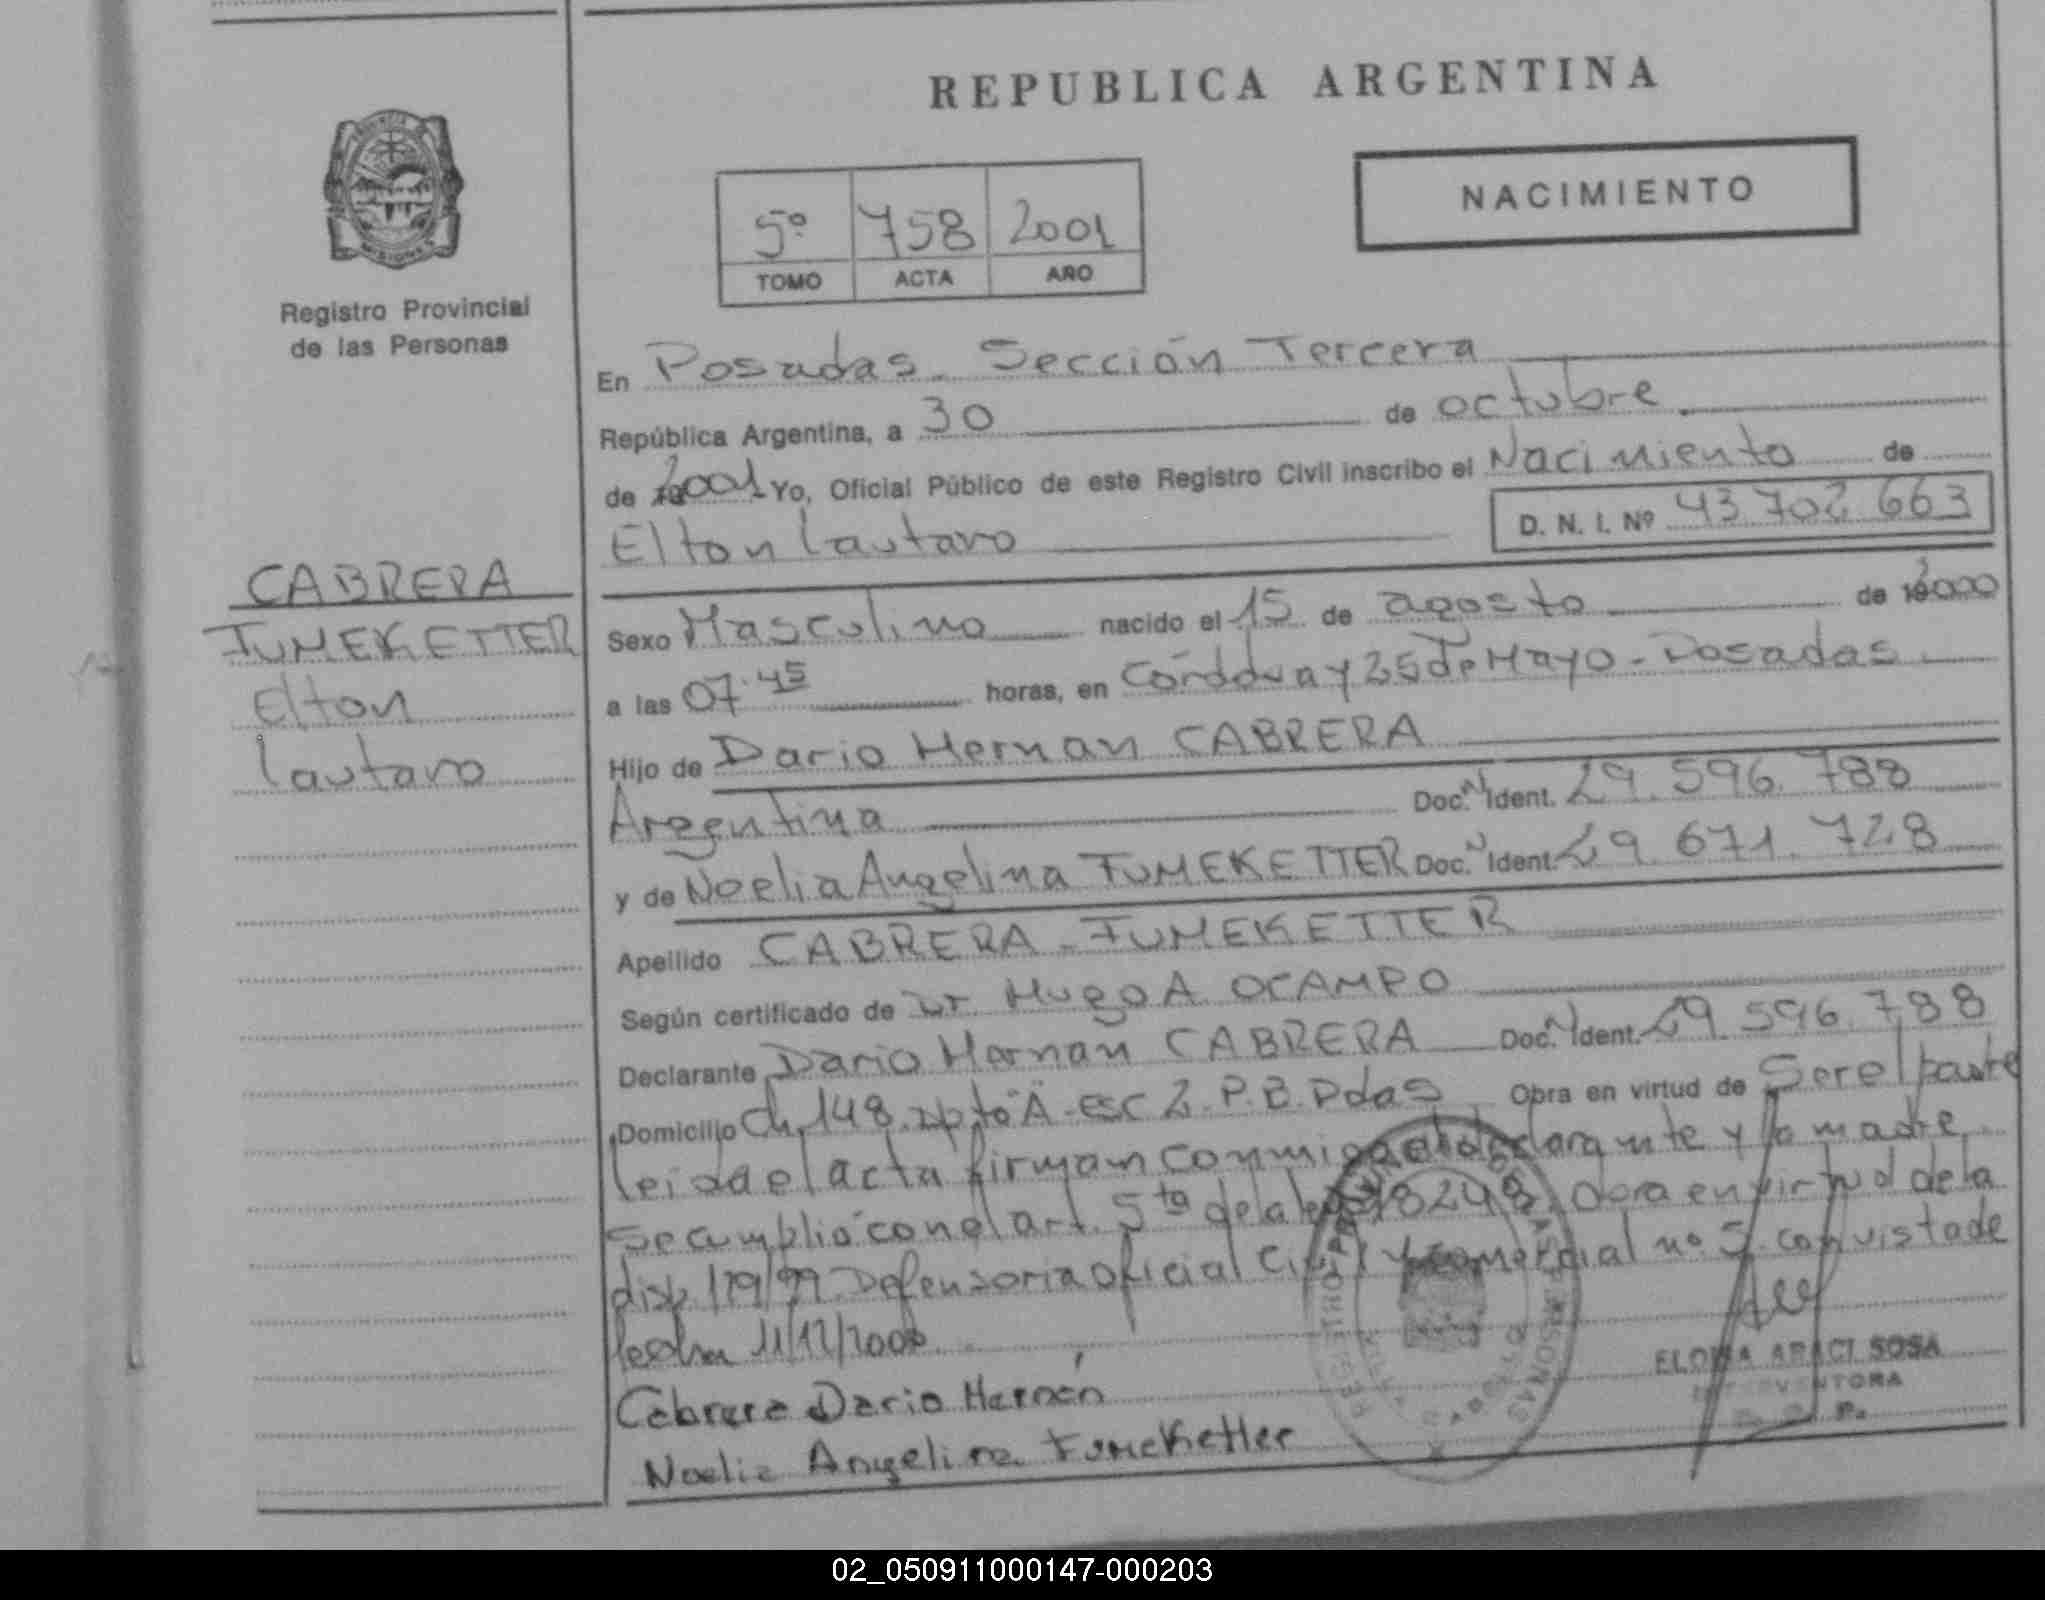 REPUBLICA ARGENTINA
NACIMIENTO
5º 758 2001
TOMO ACTA AÑO
Registro Provincial
de las Personas
En Posadas. Sección Tercera
República Argentina, a 30 de octubre
de 2001 Yo, Oficial Público de este Registro Civil inscribo el Nacimiento de
Elton Lautaro D. N. I. Nº 43 702 663
CABRERA
FUMEKETTER
Elton
Lautaro
Sexo Masculino nacido el 15 de agosto de 2000
a las 07.45 horas, en Córdova y 25 de Mayo - Posadas
Hijo de Dario Hernan CABRERA
Argentina Doc. N Ident. 29.596.788
y de Noelia Angelina FUMEKETTER Doc. N Ident. 29.671.728
Apellido CABRERA - FUMEKETTER
Según certificado de Dr. Hugo A OCAMPO
Declarante Dario Hernan CABRERA Doc. N Ident. 29.596.788
Domicilio Ch. 148. Dpto "A" esc 2. P.B. Pdas Obra en virtud de Ser el padre
leida el acta firman conmigo el declarante y la madre
se cumplió con el art. 5ta de la ley 18248. Obra en virtud de la
disp. 179/99. Defensoria oficial Civil y Comercial nº 5. con vista de
fecha 11/12/2000.
Cabrera Dario Hernán
Noelia Angelina Fumeketter
ARACI SOSA
INTERVENTORA
02_050911000147-000203